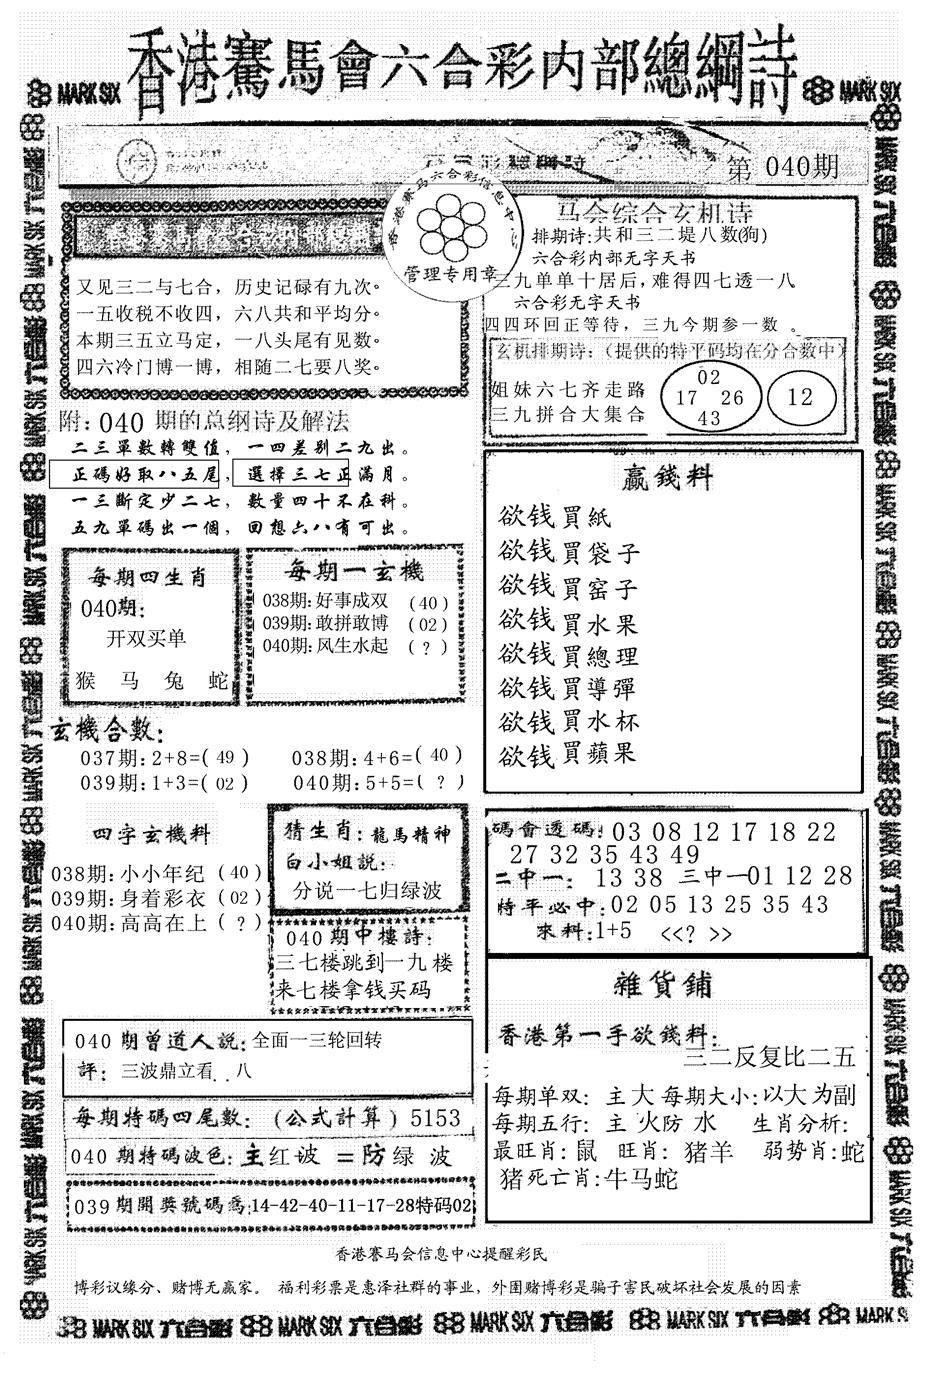 香港賽馬會六合彩内部總綱詩
第 040期
香港赛马六合彩信息中心
管理专用章
又见三二与七合，历史记碌有九次。
一五收税不收四，六八共和平均分。
本期三五立马定，一八头尾有见数。
四六冷门博一博，相随二七要八奖。
附: 040 期的总纲诗及解法
二三單數轉雙值，一四差别二九出。
正碼好取八五尾，選擇三七正滿月。
一三斷定少二七，數量四十不在科。
五九單碼出一個，回想六八有可出。
马会综合玄机诗
排期诗:共和三二堤八数(狗)
六合彩内部无字天书
三九单单十居后,难得四七透一八
六合彩无字天书
四四环回正等待，三九今期参一数 。
玄机排期诗:（提供的特平码均在分合数中）
姐妹六七齐走路
三九拼合大集合
02
17 26
43
12
每期四生肖
040期:
开双买单
猴 马 兔 蛇
每期一玄機
038期:好事成双 (40)
039期:敢拼敢博 (02)
040期:风生水起 (?)
玄機合數:
037期:2+8=(49) 038期:4+6=(40)
039期:1+3=(02) 040期:5+5=(?)
四字玄機料
038期:小小年纪 (40)
039期:身着彩衣 (02)
040期:高高在上 (?)
猜生肖: 龍馬精神
白小姐説:
分说一七归绿波
040期中樓詩:
三七楼跳到一九楼
来七楼拿钱买码
040期曾道人説:全面一三轮回转
評: 三波鼎立看..八
每期特碼四尾數: (公式計算) 5153
040期特碼波色:主红波 =防绿 波
039期開奬號碼爲:14-42-40-11-17-28特码02
赢錢料
欲钱買紙
欲钱買袋子
欲钱買窑子
欲钱買水果
欲钱買總理
欲钱買導彈
欲钱買水杯
欲钱買蘋果
碼會透碼: 03 08 12 17 18 22
27 32 35 43 49
二中一: 13 38 三中一01 12 28
特平必中:02 05 13 25 35 43
來料:1+5 <<? >>
雜貨鋪
香港第一手欲錢料:
三二反复比二五
每期单双: 主大 每期大小:以大为副
每期五行: 主 火防 水 生肖分析:
最旺肖:鼠 旺肖: 猪羊 弱势肖:蛇
猪死亡肖:牛马蛇
香港赛马会信息中心提醒彩民
博彩议缘分、赌博无赢家。 福利彩票是惠泽社群的事业，外围赌博彩是骗子害民破坏社会发展的因素
MARK SIX 六合彩 MARK SIX 六合彩 MARK SIX 六合彩 MARK SIX 六合彩 MARK SIX